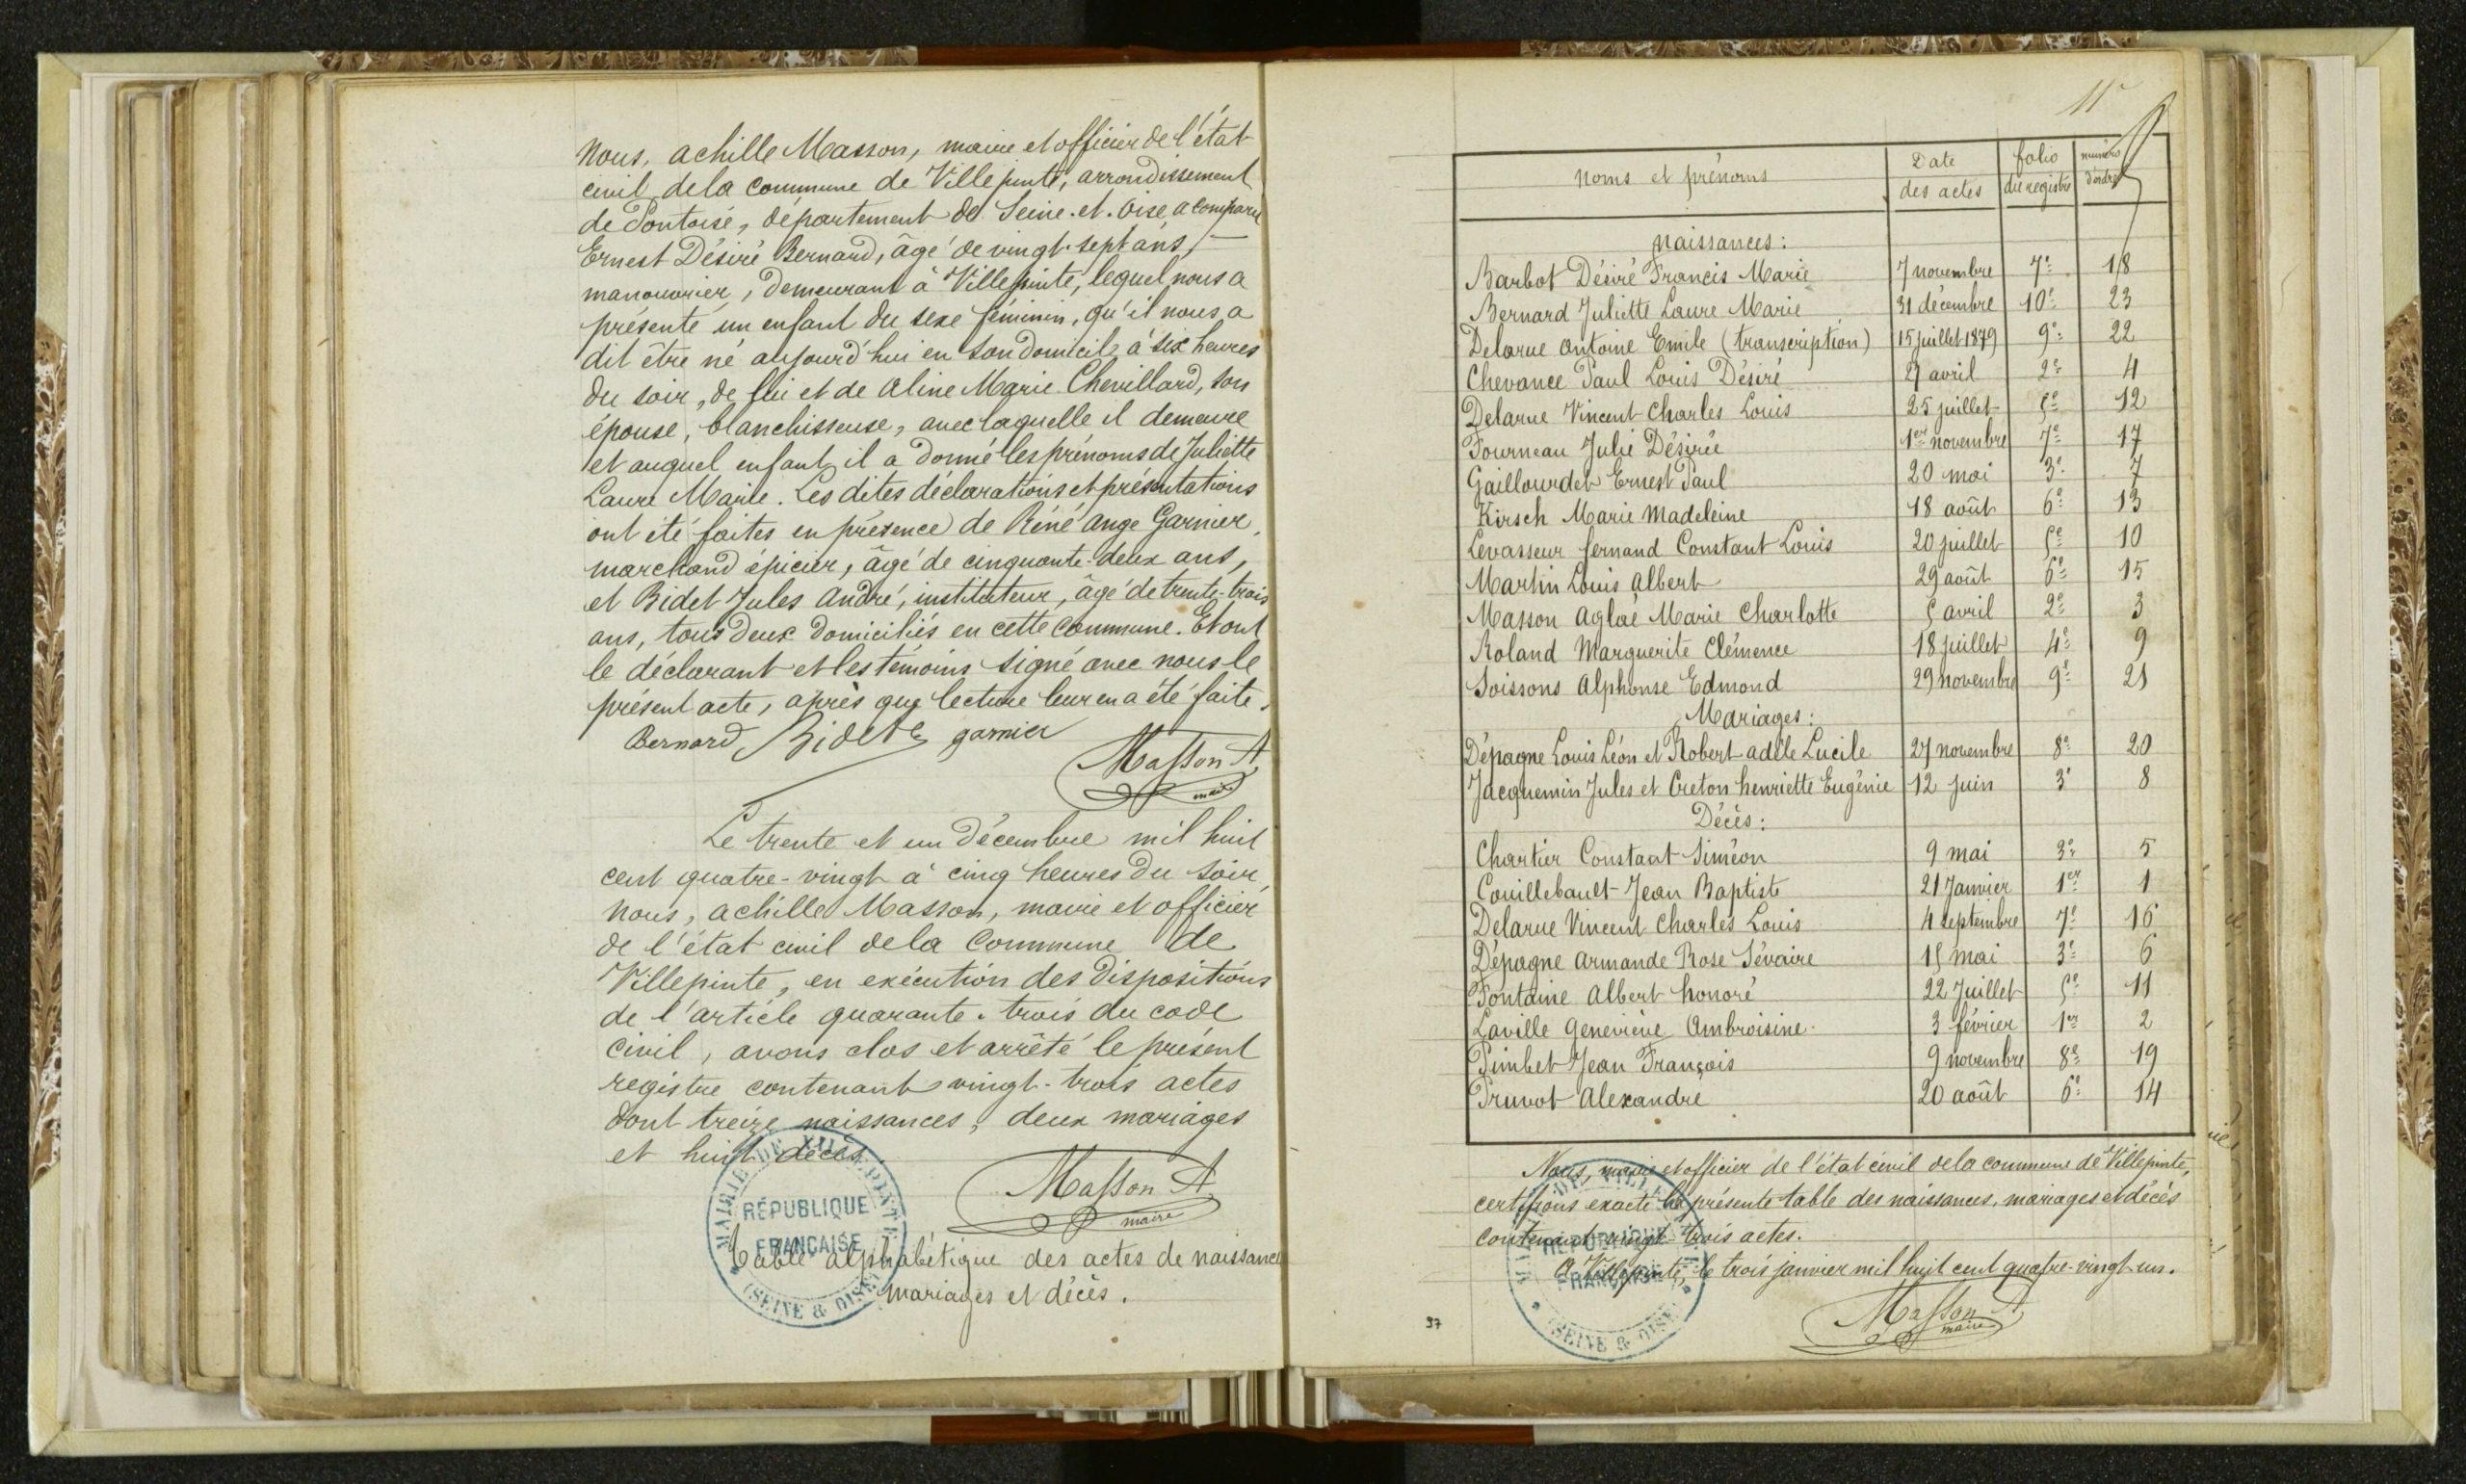 Nous, achille Masson, maire et officier de l'état
civil de la commune de Villepinte, arrondissement
de Pontoise, département de Seine-et-Oise a comparu
Ernest Désiré Bernard, âgé de vingt-sept ans,
manouvrier, demeurant à Villepinte, lequel nous a
présenté un enfant du sexe féminin, qu'il nous a
dit être né aujourd'hui en son domicile à six heures
du soir, de lui et de Aline Marie Chevillard, son
épouse, blanchisseuse, avec laquelle il demeure
et auquel enfant il a donné les prénoms de Juliette
Laure Marie. Les dites déclarations et présentations
ont été faites en présence de Réné ange Garnier,
marchand épicier, âgé de cinquante-deux ans,
et Bidet Jules André, instituteur, âgé de trente-trois
ans, tous deux domiciliés en cette commune. Et ont
le déclarant et les témoins signé avec nous le
présent acte, après que lecture leur en a été faite.
Bernard Bidet garnier
Masson A
maire
Le trente et un Décembre mil huit
cent quatre-vingt à cinq heures du soir,
nous, achille Masson, maire et officier
de l'état civil de la Commune de
Villepinte, en exécution des dispositions
de l'article quarante-trois du code
civil, avons clos et arrêté le présent
registre contenant vingt-trois actes
dont treize naissances, deux mariages
et huit décès.
Masson A
maire
MAIRIE DE VILLEPINTE
RÉPUBLIQUE
FRANÇAISE
(SEINE & OISE)
Table alphabétique des actes de naissance
mariages et décès.
11
noms et prénoms Date des actes folio du registre numéro d'ordre
naissances:
Barbot Désiré Francis Marie 7 novembre 7e 18
Bernard Juliette Laure Marie 31 décembre 10e 23
Delarue Antoine Emile (transcription) 15 juillet 1879 9e 22
Chevance Paul Louis Désiré 27 avril 2e 4
Delarue Vincent Charles Louis 25 juillet 5e 12
Fourneau Julie Désirée 1er novembre 7e 17
Gaillourdet Ernest Paul 20 mai 3e 7
Kirsch Marie Madeleine 18 août 6e 13
Levasseur fernand Constant Louis 20 juillet 5e 10
Martin Louis Albert 29 août 6e 15
Masson Aglaé Marie Charlotte 5 avril 2e 3
Roland Marguerite Clémence 18 juillet 4e 9
Soissons Alphonse Edmond 29 novembre 9e 21
Mariages:
Dépagne Louis Léon et Robert adèle Lucile 27 novembre 8e 20
Jacquemin Jules et Creton henriette Eugénie 12 juin 3e 8
Décès:
Chartier Constant Siméon 9 mai 3e 5
Couillebault Jean Baptiste 21 Janvier 1er 1
Delarue Vincent Charles Louis 4 septembre 7e 16
Dépagne Armande Rose Sévaire 15 mai 3e 6
Fontaine Albert honoré 22 Juillet 5e 11
Laville Geneviève Ambroisine 3 février 1er 2
Pimbet Jean François 9 novembre 8e 19
Pruvot Alexandre 20 août 6e 14
Nous, maire et officier de l'état civil de la commune de Villepinte,
certifions exacte la présente table des naissances, mariages et décès
contenant vingt-trois actes.
A Villepinte, le trois janvier mil huit cent quatre-vingt-un.
Masson A
maire
37
DE VILLE
RÉPUBLIQUE
FRANÇAISE
(SEINE & OISE)